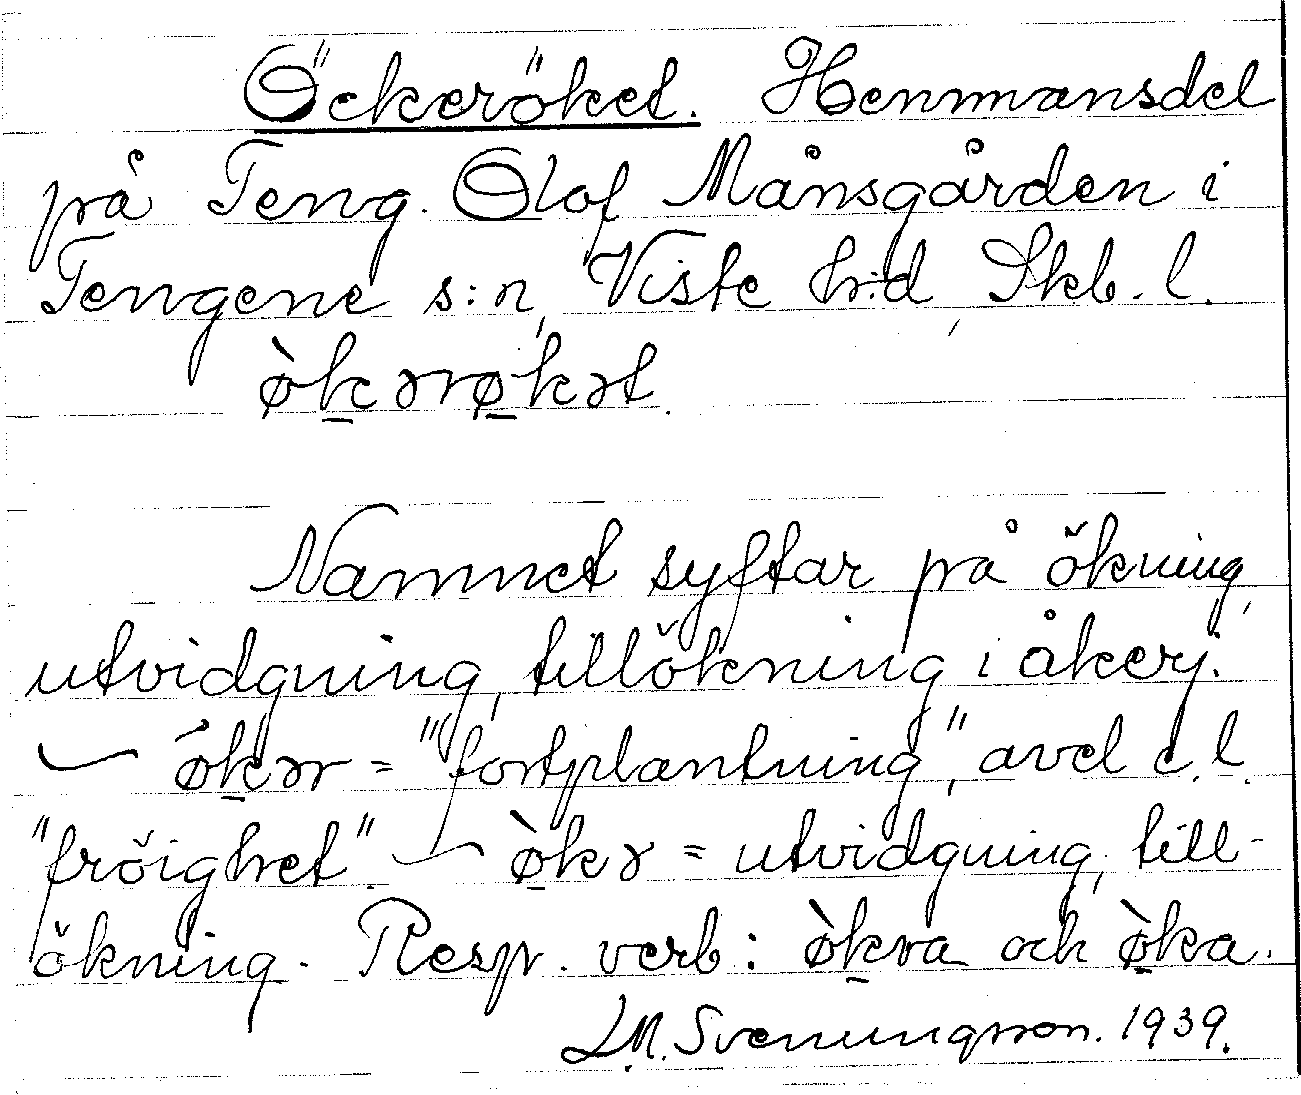 Öckeröket. Hemmansdel
på Teng. Olof Månsgården i
Tengene s:n, Viste h:d, Skb. l.
ø̀k̠ərø̠kət.
Namnet syftar på ökning,
utvidgning, tillökning i åkerj.
— ǿk̠ər = "fortplantning", avel e.l.
"fröighet". — ø̠̀kə = utvidgning, till-
ökning. Resp. verb: ø̀k̠ra och ø̠̀ka.
L.M. Svenungsson. 1939.